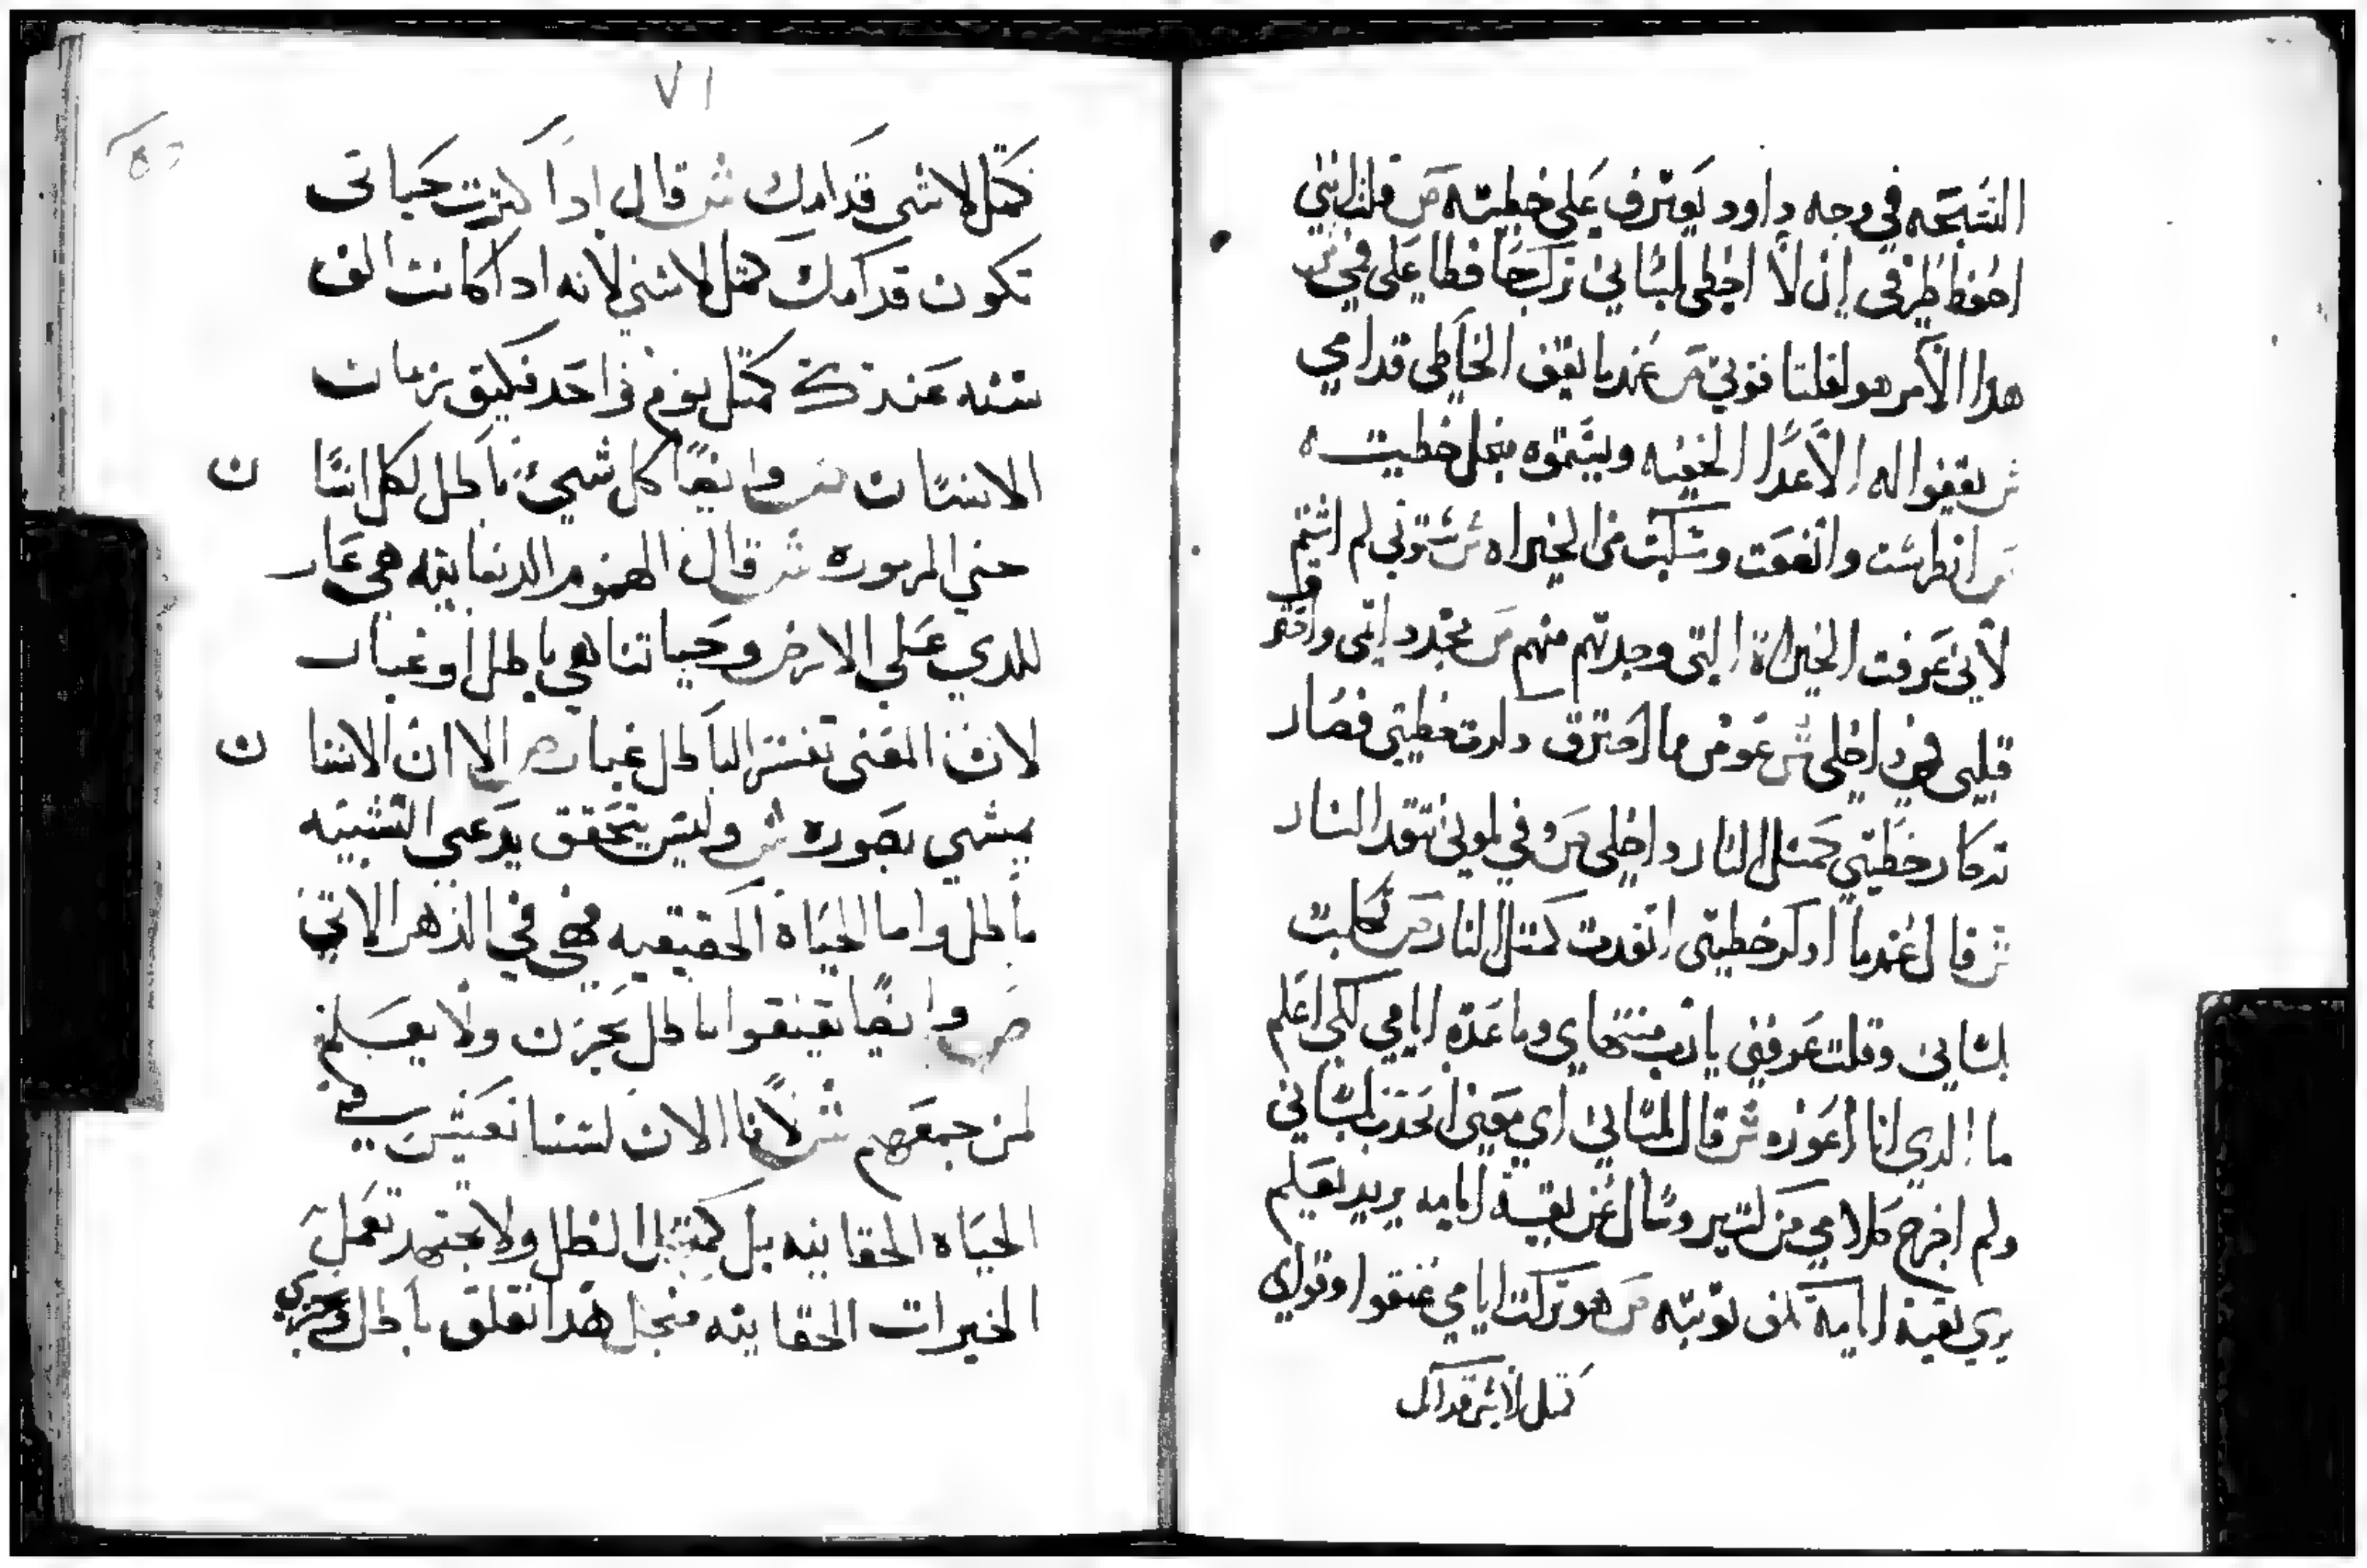 التسبحه في وجه داود يعترف على خطيته ص قلت انني
احفظ طرقي ان لا اخطي بلساني تركت حافظا على فمي ش
هدا الأمر هو لفلتا فوني ص عندما يقف الخاطي قدامي
ش يقفوا له الأعدا الخفيه ويشتموه منجل خطيته
ص انطرست واتضعت وسكت من الخيراه ش شتوني لم اشتم
لأني عرفت الخيراة التي وجدتهم منهم ص تجدد المي واحترق
قلبي في داخلي ش عوض ما احترق دكرت خطيتي فصار
تدكار خطيتي كمتل النار داخلي ص وفي لهوني تتقد النار
ش قال عندما ادكر خطيتي اتقدت كمتل النار ص تكلمت
بلساني وقلت عرفني يا رب منتهاي وما عدة ايامي لكي اعلم
ما الدي انا اعوزه ش قال بلساني اي معني اتحدت بلساني
ولم اخرج كلامي من لتير وسال عن بقية ايامه يريد يعلم
يري بقية ايامه تلف توبته ص هو تركت ايامي عتقوا وقواي
كمتل لاشي قدامك
٧١
كمتل لاشي قدامك ش قال ادا كترت حياتي
تكون قدامك كمتل لاشي لانه ادا كانت الف
سنه عندك كمتل يوم واحد فكيف زمان
الانسان ص وايضا كل شيء باطل لكل انسا ن
حتي المرموره ش قال الهموم الدنيانيه هي عار
للدي علي الارض وحياتنا هي باطل او غبار
لان المعني تفسير الباطل غبار ص الا ان الانسا ن
يمشي بصوره ش وليس يتحقق يدعي التشبيه
باطل واما الحياة الحقيقيه فهي في الدهر الاتي
ص وايضا يقيقوا باطل يحزن ولا يعلم
لمن جمعهم ش لأنا الان لسنا نعيش في
الحياه الحقانيه بل كمتل الظل ولا نجتهد نعمل
الخيرات الحقانيه منجل هدا نقلق باطل ونجري